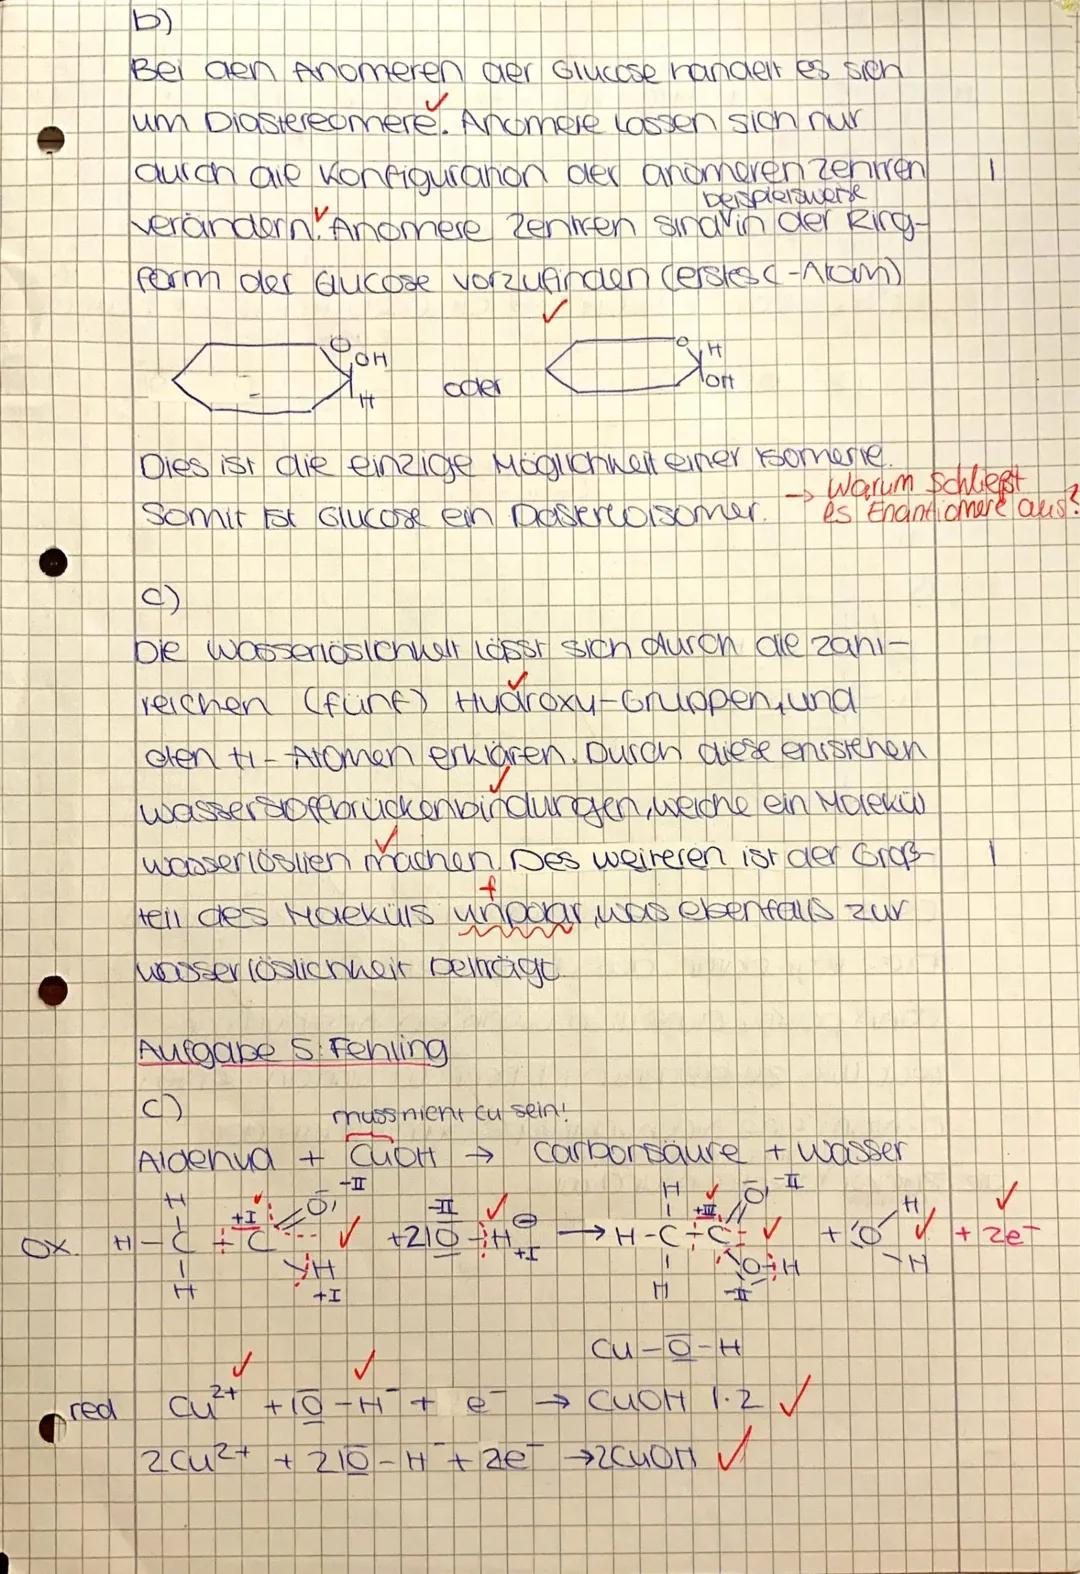 b)
Bei den Anomeren der Glucose handelt es sich
um Diastereomere. Anomere lassen sich nur
durch die Konfiguration der anomeren Zentren 1
beispielsweise
verändern. Anomere Zentren sind in der Ring-
form der Glucose vorzufinden (erstes C-Atom)
O OH H
oder
O H OH
Dies ist die einzige Möglichkeit einer Isomerie.
Somit ist Glucose ein Diastereoisomer. → Warum schließt
es Enantiomere aus?
c)
Die Wasserlöslichkeit lässt sich durch die zahl-
reichen (fünf) Hydroxy-Gruppen, und
den H-Atomen erklären. Durch diese entstehen
Wasserstoffbrückenbindungen, welche ein Molekül
wasserlöslich machen. Des weiteren ist der Groß- 1
f
teil des Moleküls unpolar, was ebenfalls zur
Wasserlöslichkeit beiträgt.
Aufgabe 5: Fehling
c) muss nicht Cu sein!
Aldehyd + CuOH → Carbonsäure + Wasser
Ox. H-C-C +I O -II H +I + 2 |O-H⁻ -II +I → H-C-C +III O -II O-H -II + O H H + 2e⁻
H H H H
Cu-O-H
red Cu²⁺ + |O-H⁻ + e⁻ → CuOH |·2
2Cu²⁺ + 2|O-H⁻ + 2e⁻ → 2CuOH